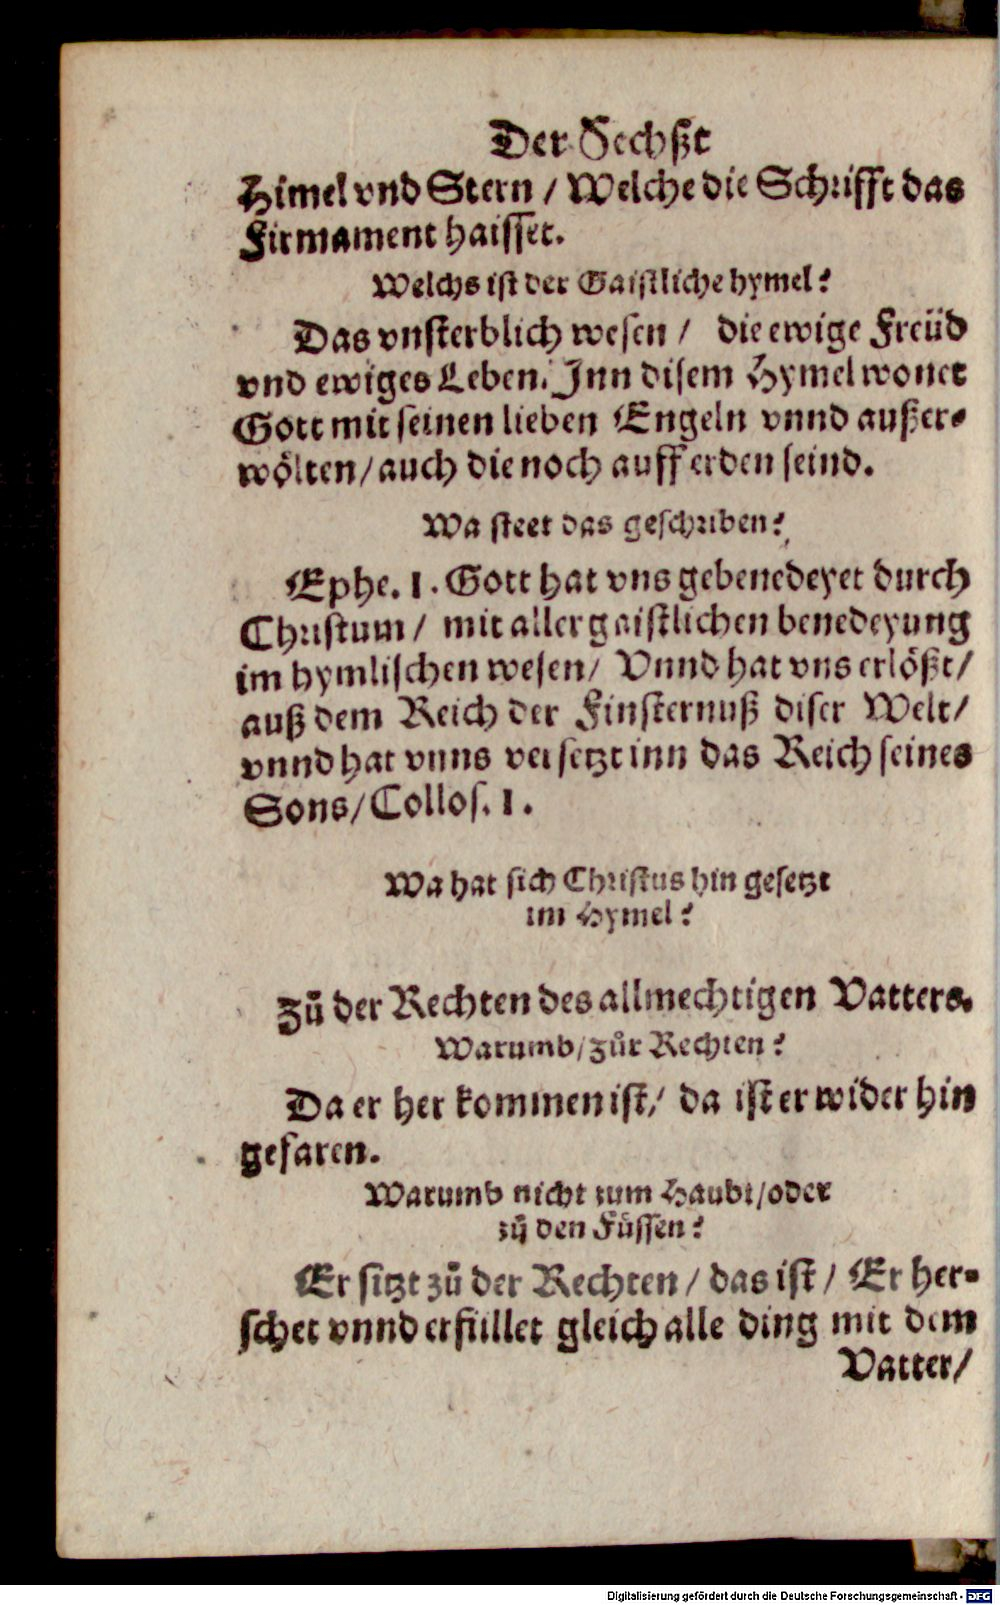 Der Sechßt
Himel vnd Stern / Welche die Schrifft das
Firmament haisset.
Welchs ist der Gaistliche hymel?
Das vnsterblich wesen / die ewige Freüd
vnd ewiges Leben. Inn disem Hymel wonet
Gott mit seinen lieben Engeln vnnd außer-
wölten / auch die noch auff erden seind.
Wa steet das geschriben?
Ephe. 1. Gott hat vns gebenedeyet durch
Christum / mit aller gaistlichen benedeyung
im hymlischen wesen / Vnnd hat vns erlößt /
auß dem Reich der Finsternuß diser Welt /
vnnd hat vnns versetzt inn das Reich seines
Sons / Collos. 1.
Wa hat sich Christus hin gesetzt
im Hymel?
Zů der Rechten des allmechtigen Vatters.
Warumb / zůr Rechten?
Da er her kommen ist / da ist er wider hin
gefaren.
Warumb nicht zum Haubt / oder
zů den Füssen?
Er sitzt zů der Rechten / das ist / Er her-
schet vnnd erfüllet gleich alle ding mit dem
Vatter /
Digitalisierung gefördert durch die Deutsche Forschungsgemeinschaft - DFG